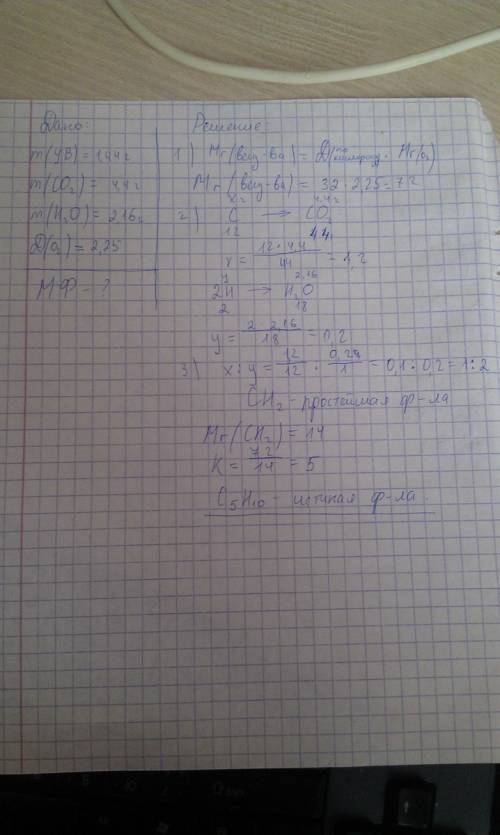 Дано:
m(УВ) = 1,44 г
m(CO₂) = 4,4 г
m(H₂O) = 2,16 г
D(O₂) = 2,25
МФ - ?
Решение:
1) Mr(вещ-ва) = D( · Mr(O₂)
Mr(вещ-ва) = 32 · 2,25 = 72
x г 4,4 г
2) C → CO₂
12 44
x = 12 · 4,4 / 44 = 1,2
y 2,16
2H → H₂O
2 18
y = 2 · 2,16 / 18 = 0,2
3) x : y = 12 / 12 : 0,24 / 1 = 0,1 : 0,2 = 1 : 2
CH₂ - простейшая ф-ла
Mr(CH₂) = 14
K = 72 / 14 = 5
C₅H₁₀ - истиная ф-ла